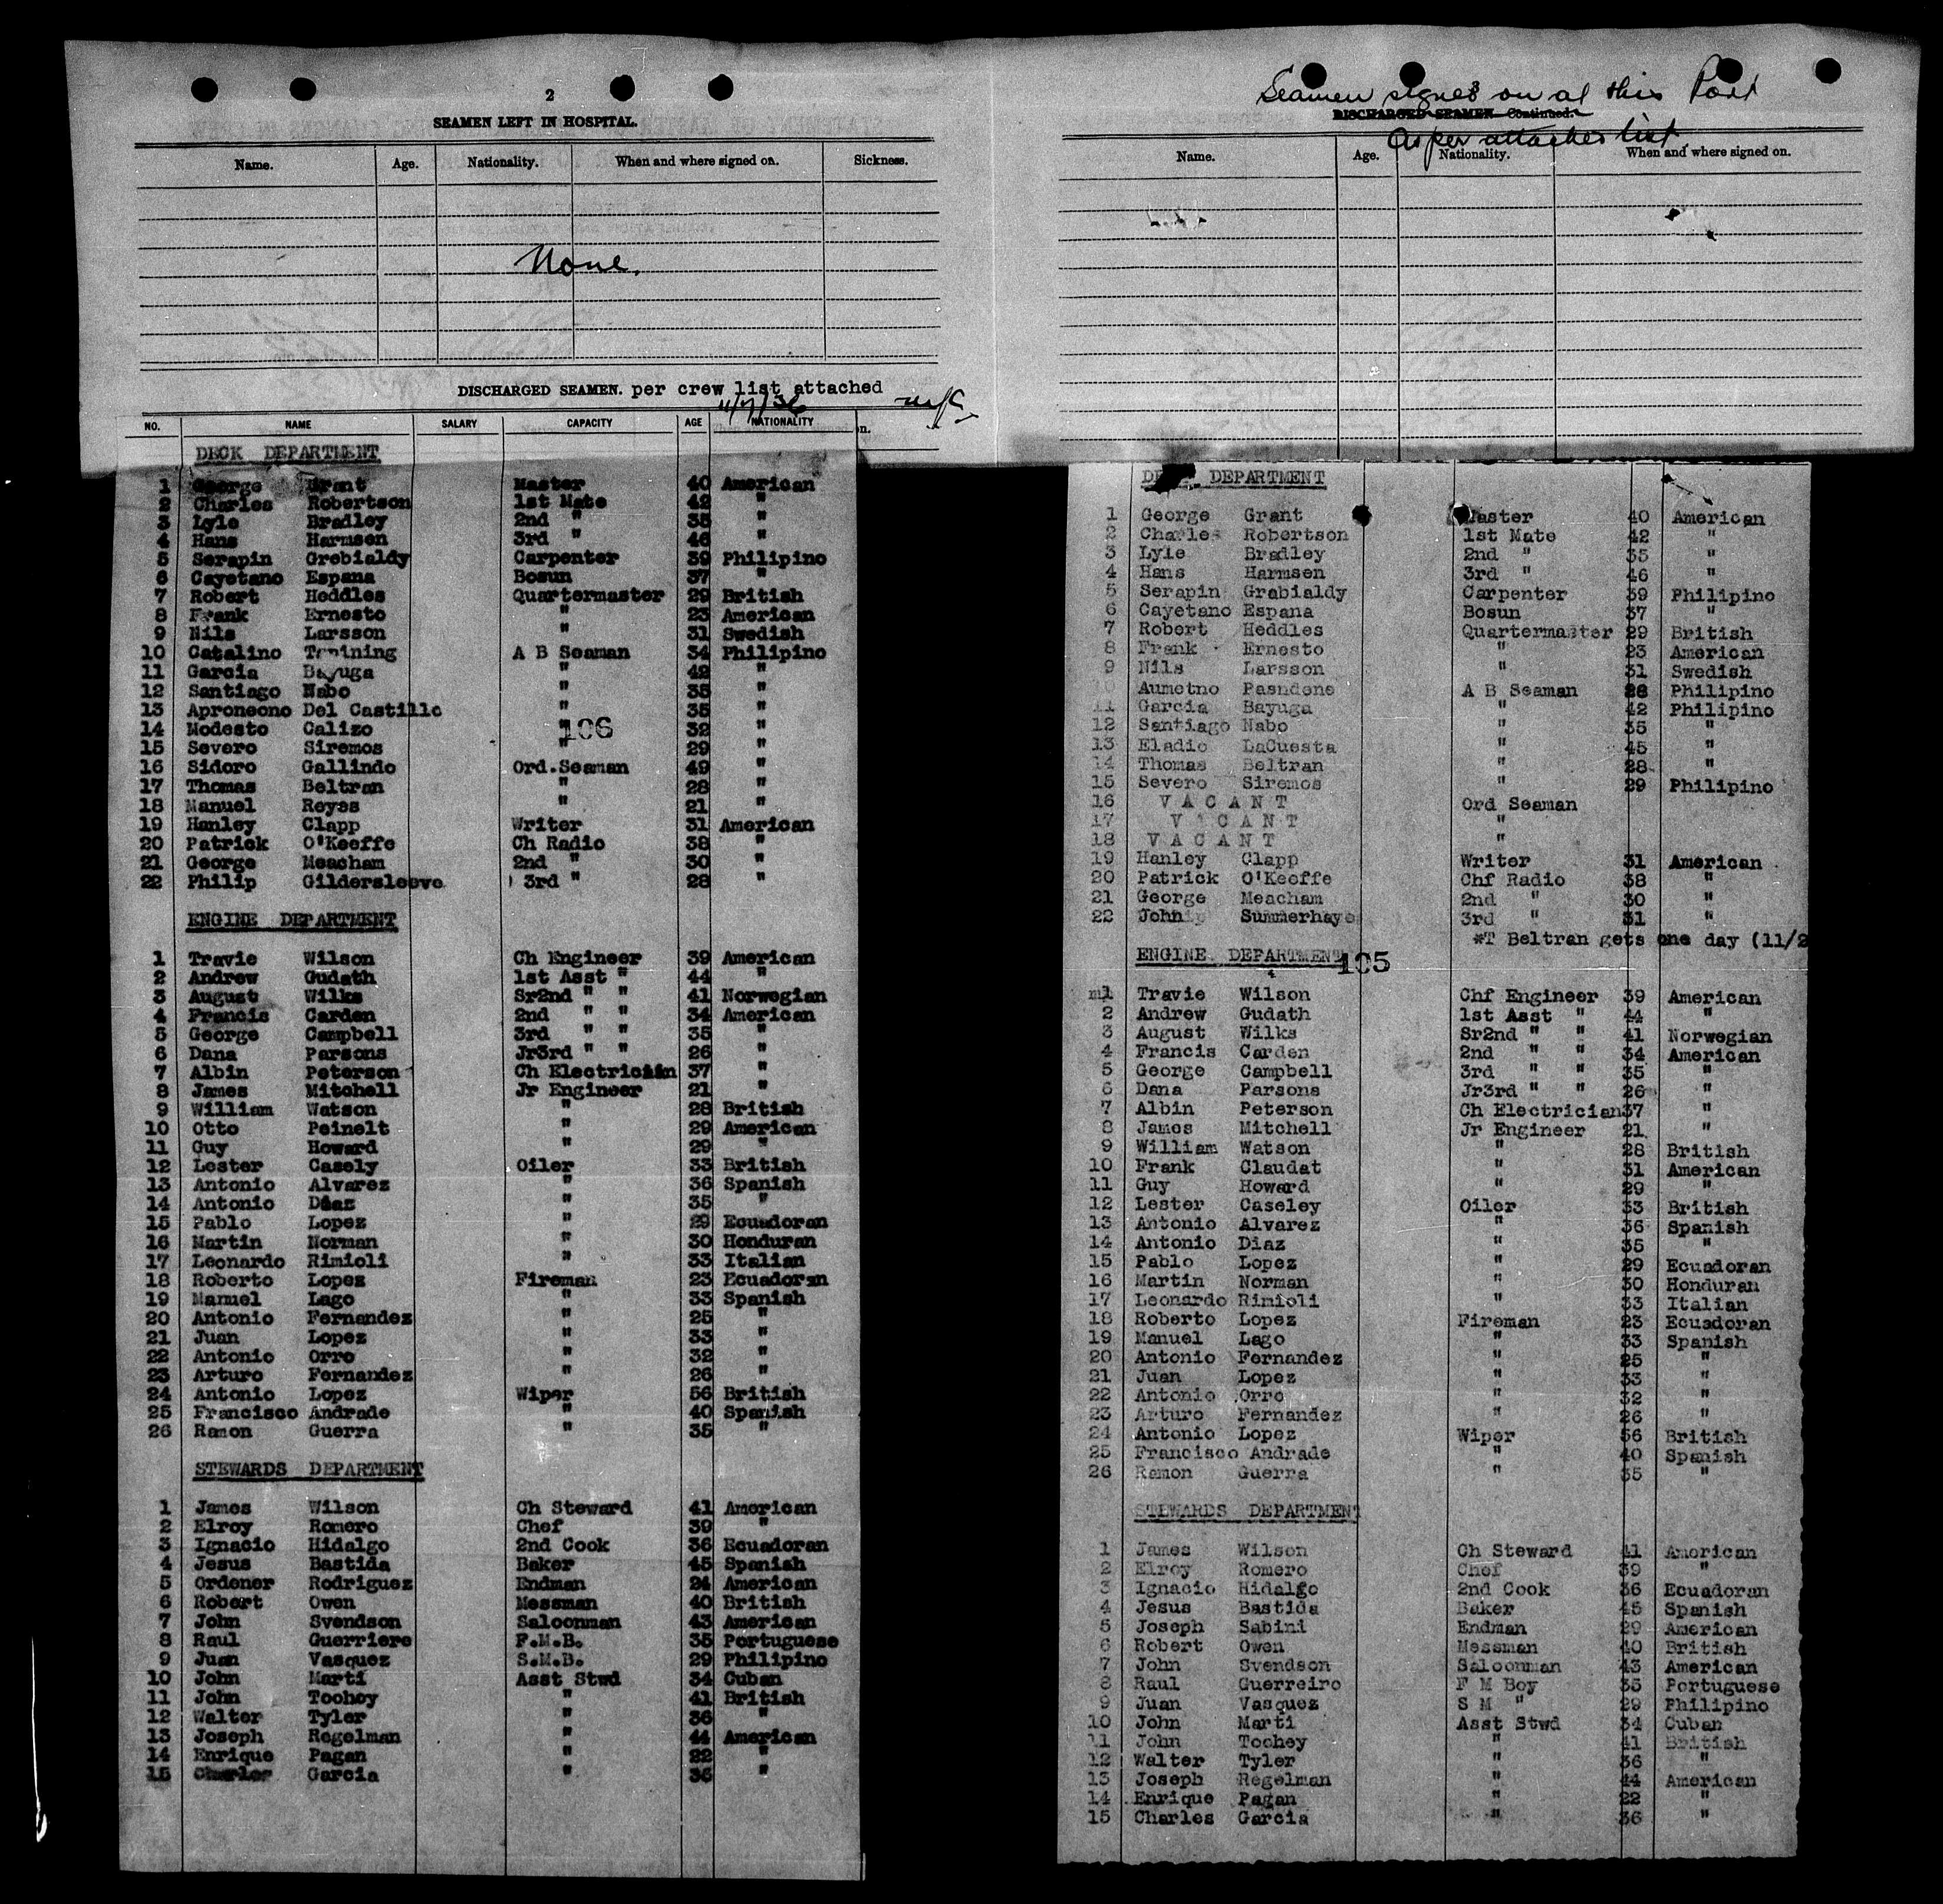 2
SEAMEN LEFT IN HOSPITAL.
Name. Age. Nationality. When and where signed on. Sickness.
None.
DISCHARGED SEAMEN. per crew list attached
11/7/36
NO. NAME SALARY CAPACITY AGE NATIONALITY
DECK DEPARTMENT
1 George Grant Master 40 American
2 Charles Robertson 1st Mate 42 "
3 Lyle Bradley 2nd " 35 "
4 Hans Harmsen 3rd " 46 "
5 Serapin Grebialdy Carpenter 39 Philipino
6 Cayetano Espana Bosun 37 "
7 Robert Heddles Quartermaster 29 British
8 Frank Ernesto " 23 American
9 Nils Larsson " 31 Swedish
10 Catalino A B Seaman 34 Philipino
11 Garcia Bayuga " 42 "
12 Santiago Nabo " 35 "
13 Aproneono Del Castillo " 35 "
14 Modesto Calizo " 32 "
106
15 Severo Siremos " 29 "
16 Sidoro Gallindo Ord.Seaman 49 "
17 Thomas Beltran " 28 "
18 Manuel Reyes " 21 "
19 Hanley Clapp Writer 31 American
20 Patrick O'Keeffe Ch Radio 38 "
21 George Meacham 2nd " 30 "
22 Philip Gildersleeve 3rd " 28 "
ENGINE DEPARTMENT
1 Travie Wilson Ch Engineer 39 American
2 Andrew Gudath 1st Asst " 44 "
3 August Wilks Sr2nd " " 41 Norwegian
4 Francis Carden 2nd " " 34 American
5 George Campbell 3rd " " 35 "
6 Dana Parsons Jr3rd " " 26 "
7 Albin Peterson Ch Electrician 37 "
8 James Mitchell Jr Engineer 21 "
9 William Watson " 28 British
10 Otto Peinelt " 29 American
11 Guy Howard " 29 "
12 Lester Casely Oiler 33 British
13 Antonio Alvarez " 36 Spanish
14 Antonio Diaz " 35 "
15 Pablo Lopez " 29 Ecuadoran
16 Martin Norman " 30 Honduran
17 Leonardo Rimioli " 33 Italian
18 Roberto Lopez Fireman 23 Ecuadoran
19 Manuel Lago " 33 Spanish
20 Antonio Fernandez " 25 "
21 Juan Lopez " 33 "
22 Antonio Orro " 32 "
23 Arturo Fernandez " 26 "
24 Antonio Lopez Wiper 56 British
25 Francisco Andrade " 40 Spanish
26 Ramon Guerra " 35 "
STEWARDS DEPARTMENT
1 James Wilson Ch Steward 41 American
2 Elroy Romero Chef 39 "
3 Ignacio Hidalgo 2nd Cook 36 Ecuadoran
4 Jesus Bastida Baker 45 Spanish
5 Ordener Rodriguez Endman 24 American
6 Robert Owen Messman 40 British
7 John Svendson Saloonman 43 American
8 Raul Guerriere F.M.B. 35 Portuguese
9 Juan Vasquez S.M.B. 29 Philipino
10 John Marti Asst Stwd 34 Cuban
11 John Toohey " 41 British
12 Walter Tyler " 36 "
13 Joseph Regelman " 44 American
14 Enrique Pagan " 22 "
15 Charles Garcia " 36 "
Seamen signed on at this Port
3
DISCHARGED SEAMEN Continued.
As per attached list
Name. Age. Nationality. When and where signed on.
DEPARTMENT
1 George Grant Master 40 American
2 Charles Robertson 1st Mate 42 "
3 Lyle Bradley 2nd " 35 "
4 Hans Harmsen 3rd " 46 "
5 Serapin Grabialdy Carpenter 39 Philipino
6 Cayetano Espana Bosun 37 "
7 Robert Heddles Quartermaster 29 British
8 Frank Ernesto " 23 American
9 Nils Larsson " 31 Swedish
10 Aumetno Pasndene A B Seaman 28 Philipino
11 Garcia Bayuga " 42 Philipino
12 Santiago Nabo " 35 "
13 Eladio LaCuesta " 45 "
14 Thomas Beltran " 28 "
15 Severo Siremos " 29 Philipino
16 V A C A N T Ord Seaman
17 V A C A N T "
18 V A C A N T "
19 Hanley Clapp Writer 31 American
20 Patrick O'Keeffe Chf Radio 38 "
21 George Meacham 2nd " 30 "
22 John Summerhaye 3rd " 31 "
*T Beltran gets one day (11/2
ENGINE DEPARTMENT
105
1 Travie Wilson Chf Engineer 39 American
2 Andrew Gudath 1st Asst " 44 "
3 August Wilks Sr2nd " " 41 Norwegian
4 Francis Carden 2nd " " 34 American
5 George Campbell 3rd " " 35 "
6 Dana Parsons Jr3rd " " 26 "
7 Albin Peterson Ch Electrician 37 "
8 James Mitchell Jr Engineer 21 "
9 William Watson " 28 British
10 Frank Claudat " 31 American
11 Guy Howard " 29 "
12 Lester Caseley Oiler 33 British
13 Antonio Alvarez " 36 Spanish
14 Antonio Diaz " 35 "
15 Pablo Lopez " 29 Ecuadoran
16 Martin Norman " 30 Honduran
17 Leonardo Rimioli " 33 Italian
18 Roberto Lopez Fireman 23 Ecuadoran
19 Manuel Lago " 33 Spanish
20 Antonio Fernandez " 25 "
21 Juan Lopez " 33 "
22 Antonio Orro " 32 "
23 Arturo Fernandez " 26 "
24 Antonio Lopez Wiper 56 British
25 Francisco Andrade " 40 Spanish
26 Ramon Guerra " 35 "
STEWARDS DEPARTMENT
1 James Wilson Ch Steward 41 American
2 Elroy Romero Chef 39 "
3 Ignacio Hidalgo 2nd Cook 36 Ecuadoran
4 Jesus Bastida Baker 45 Spanish
5 Joseph Sabini Endman 29 American
6 Robert Owen Messman 40 British
7 John Svendson Saloonman 43 American
8 Raul Guerreiro F M Boy 35 Portuguese
9 Juan Vasquez S M " 29 Philipino
10 John Marti Asst Stwd 34 Cuban
11 John Toohey " 41 British
12 Walter Tyler " 36 "
13 Joseph Regelman " 44 American
14 Enrique Pagan " 22 "
15 Charles Garcia " 36 "